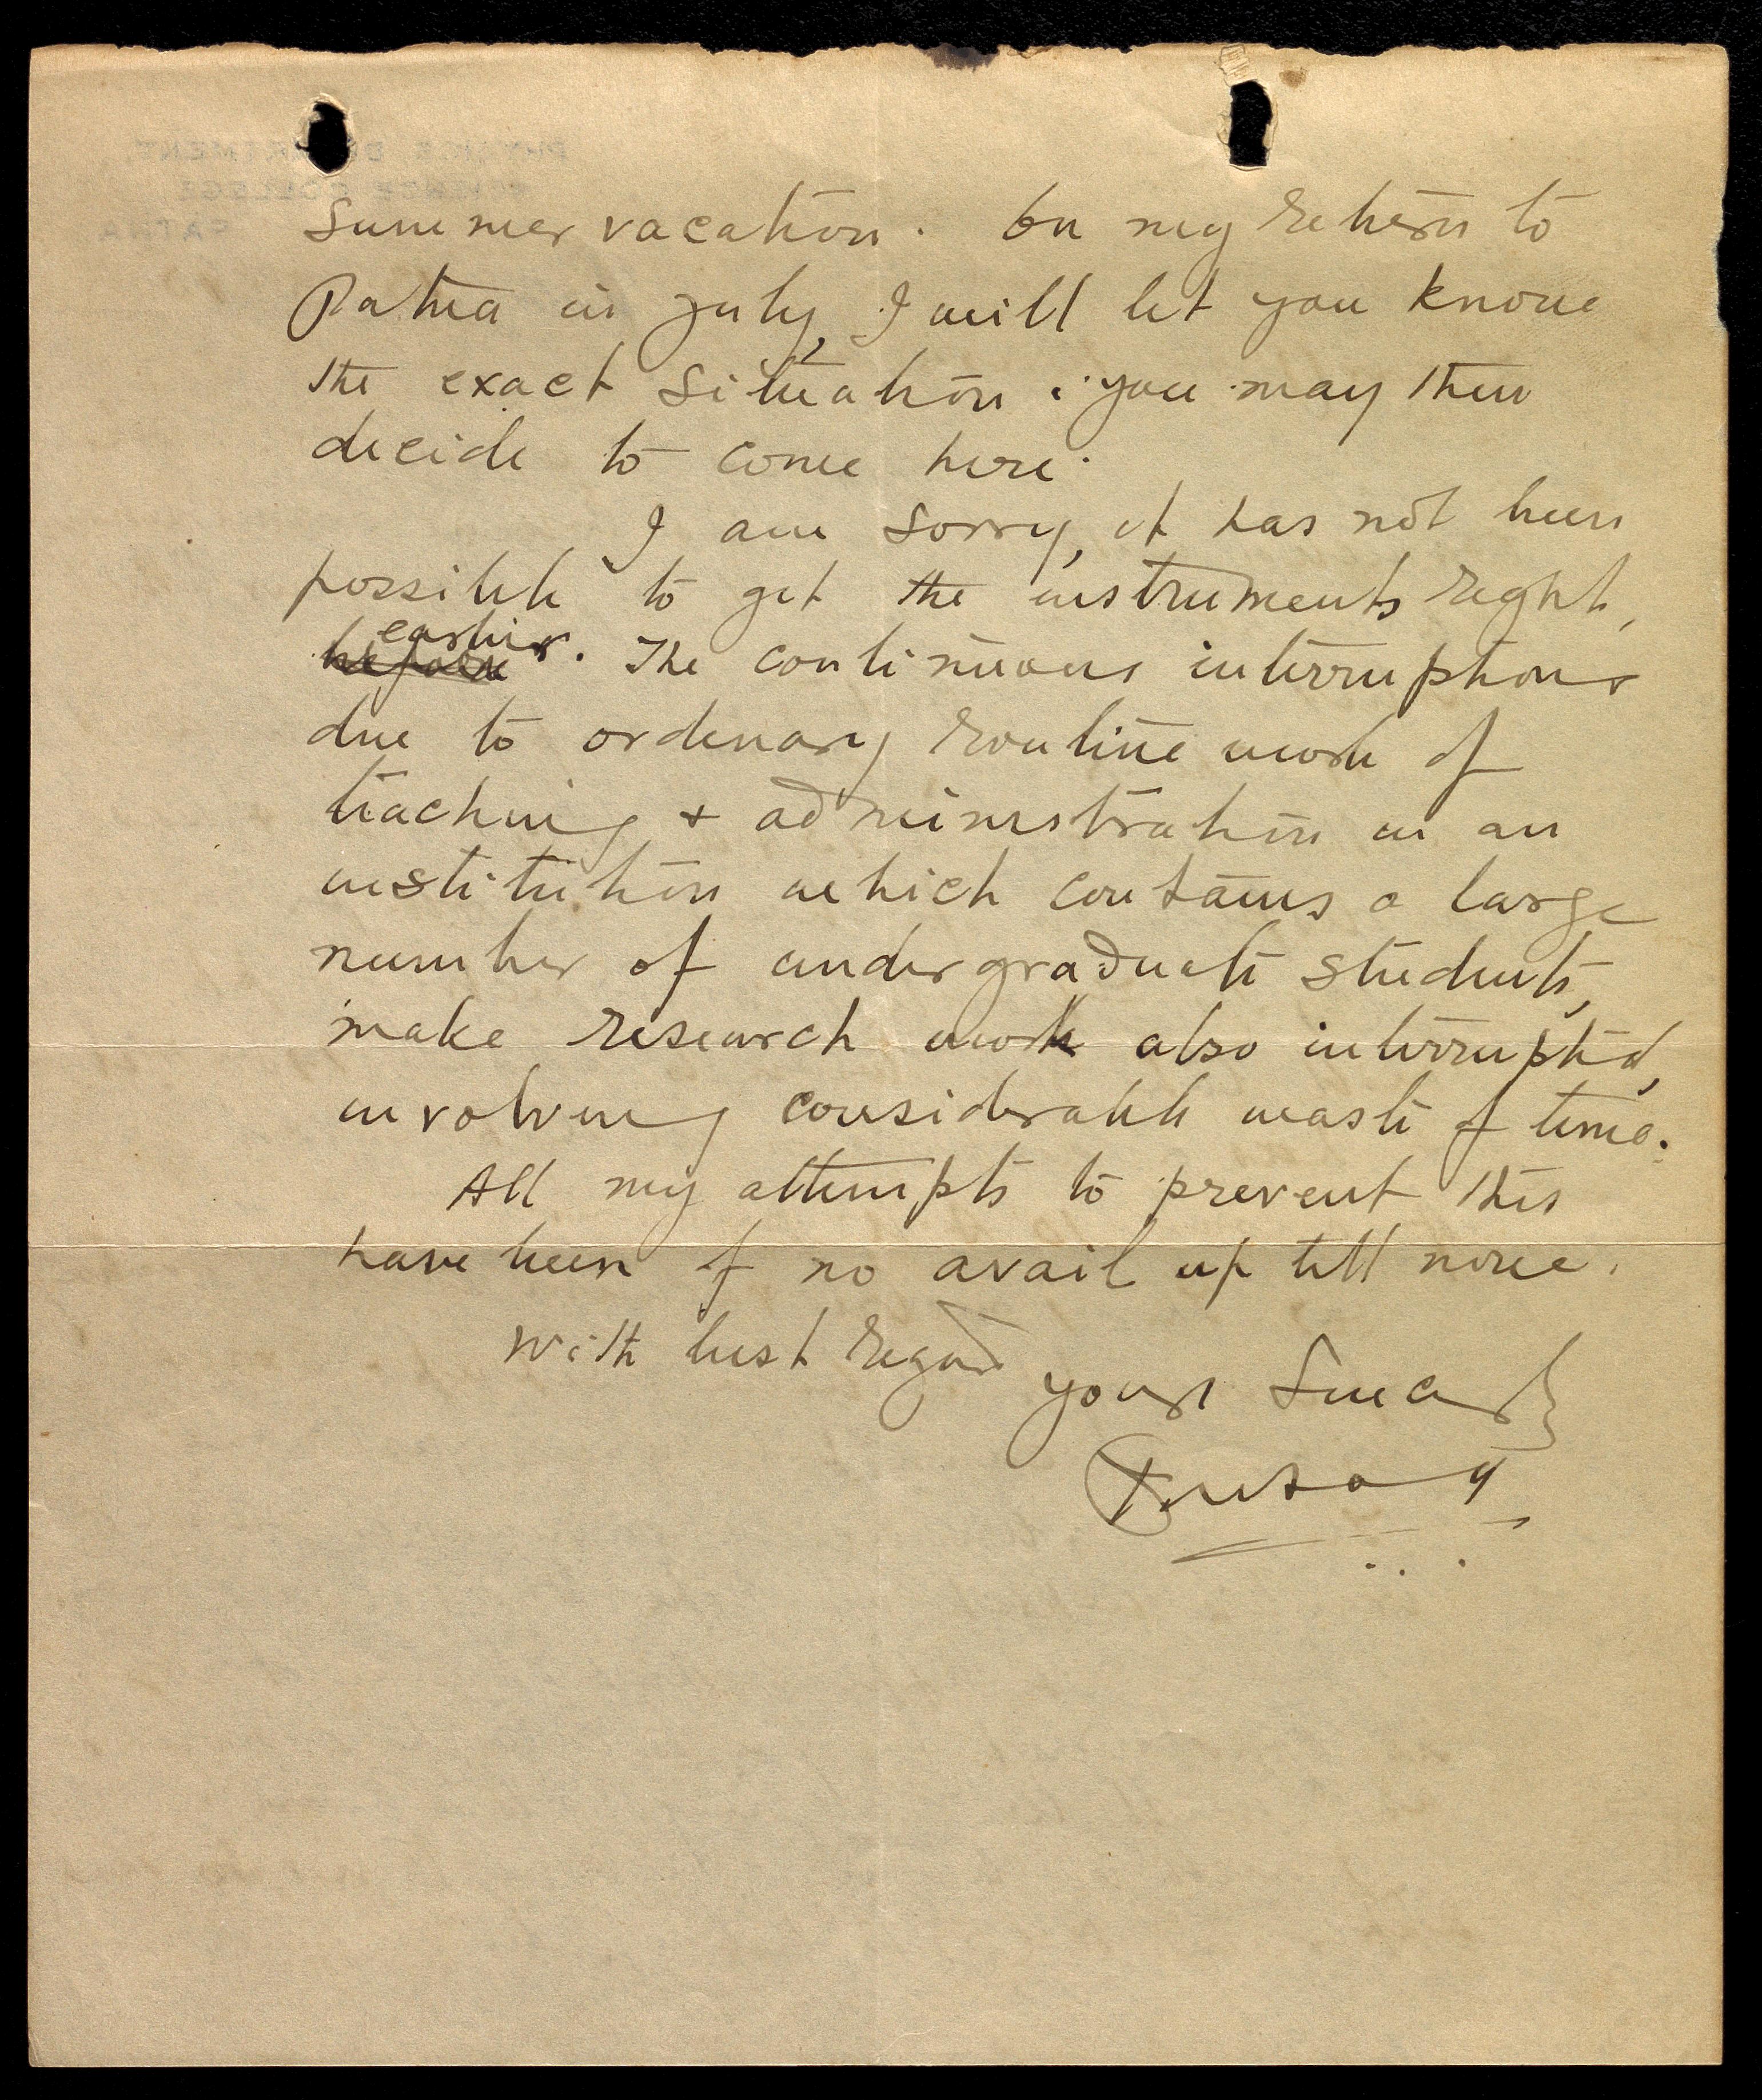 PHYSICS DEPARTMENT,
SCIENCE COLLEGE
PATNA
summer vacation. On my return to
Patna in July, I will let you know
the exact situation. you may then
decide to come here.
I am sorry, it has not been
possible to get the instruments right,
before earlier. The continuous interruptions
due to ordinary routine work of
teaching + administration in an
institution which contains a large
number of undergraduate students,
make research work also interrupted,
involving considerable waste of time.
All my attempts to prevent this
have been of no avail up till now.
With best regard
yours Sincerely